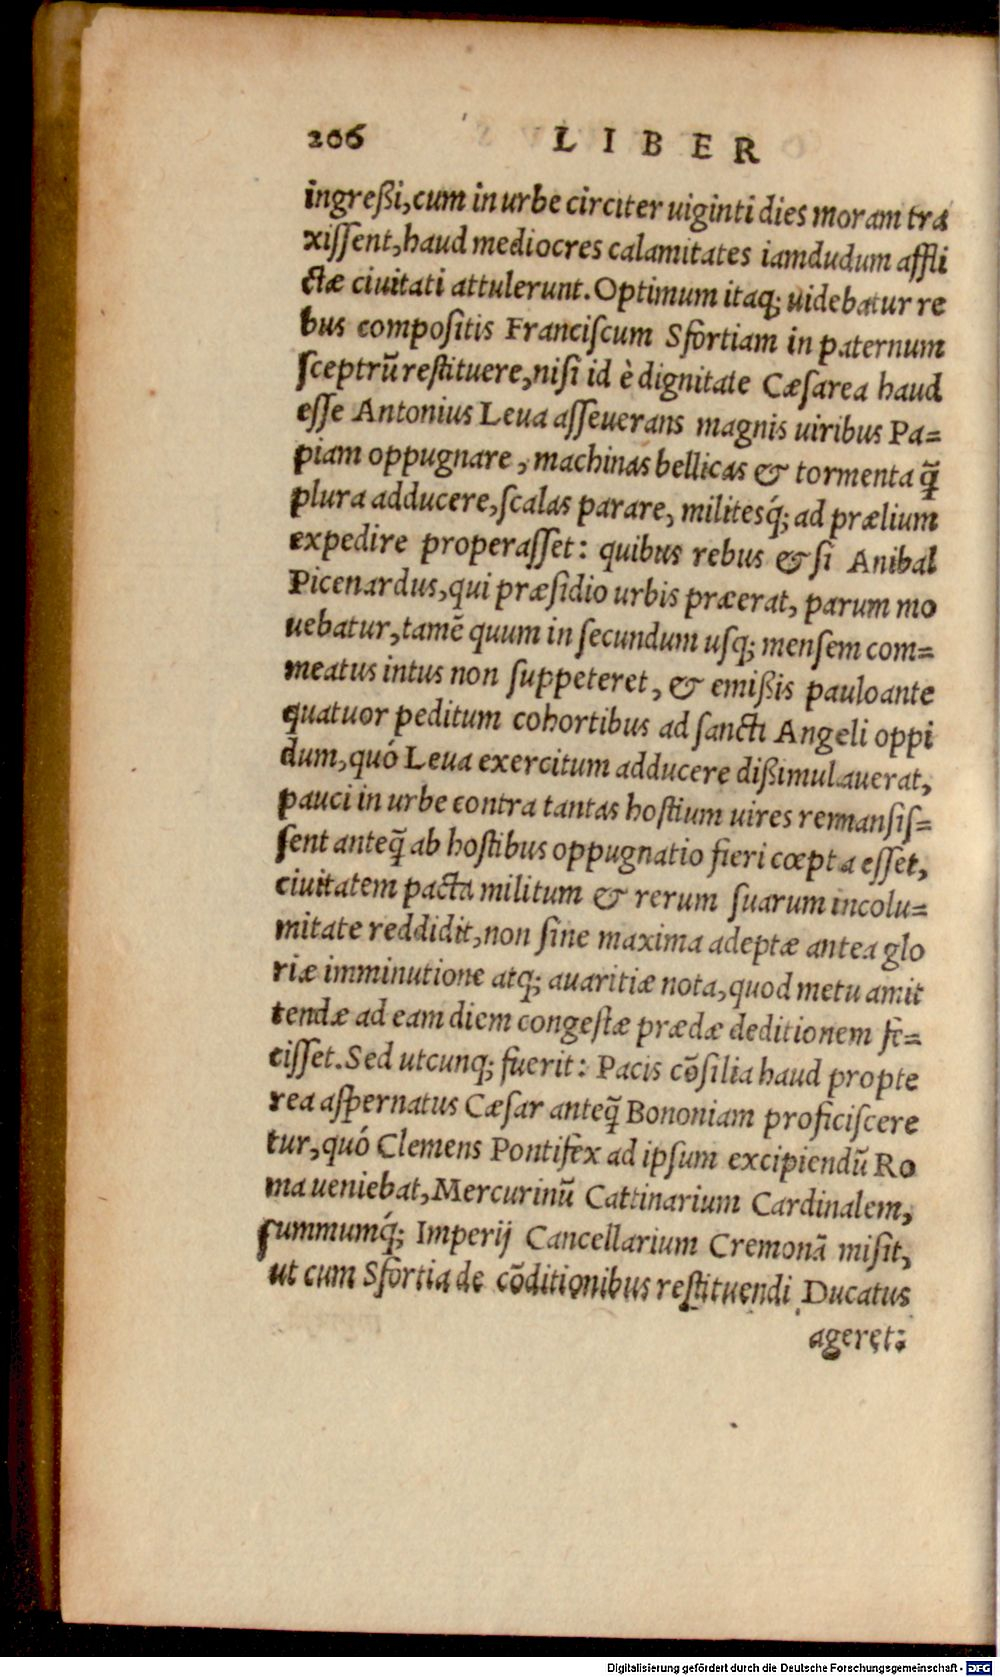 206 LIBER
ingreßi, cum in urbe circiter uiginti dies moram tra
xiſſent, haud mediocres calamitates iamdudum affli
ctæ ciuitati attulerunt. Optimum itaq; uidebatur re
bus compoſitis Franciſcum Sfortiam in paternum
ſceptrũ reſtituere, niſi id è dignitate Cæſarea haud
eſſe Antonius Leua aſſeuerans magnis uiribus Pa=
piam oppugnare, machinas bellicas & tormenta q̃
plura adducere, ſcalas parare, militesq́; ad prælium
expedire properaſſet: quibus rebus & ſi Anibal
Picenardus, qui præſidio urbis præerat, parum mo
uebatur, tamẽ quum in ſecundum uſq; menſem com=
meatus intus non ſuppeteret, & emißis pauloante
quatuor peditum cohortibus ad ſancti Angeli oppi
dum, quó Leua exercitum adducere dißimulauerat,
pauci in urbe contra tantas hoſtium uires remanſiſ=
ſent anteq̃ ab hoſtibus oppugnatio fieri cœpta eſſet,
ciuitatem pacta militum & rerum ſuarum incolu=
mitate reddidit, non ſine maxima adeptæ antea glo
riæ imminutione atq; auaritiæ nota, quod metu amit
tendæ ad eam diem congeſtæ prædæ deditionem fe=
ciſſet. Sed utcunq; fuerit: Pacis cõſilia haud propte
rea aſpernatus Cæſar anteq̃ Bononiam proficiſcere
tur, quó Clemens Pontifex ad ipſum excipiendũ Ro
ma ueniebat, Mercurinũ Cattinarium Cardinalem,
ſummumq́; Imperij Cancellarium Cremonã miſit,
ut cum Sfortia de cõditionibus reſtituendi Ducatus
ageret:
Digitalisierung gefördert durch die Deutsche Forschungsgemeinschaft - DFG